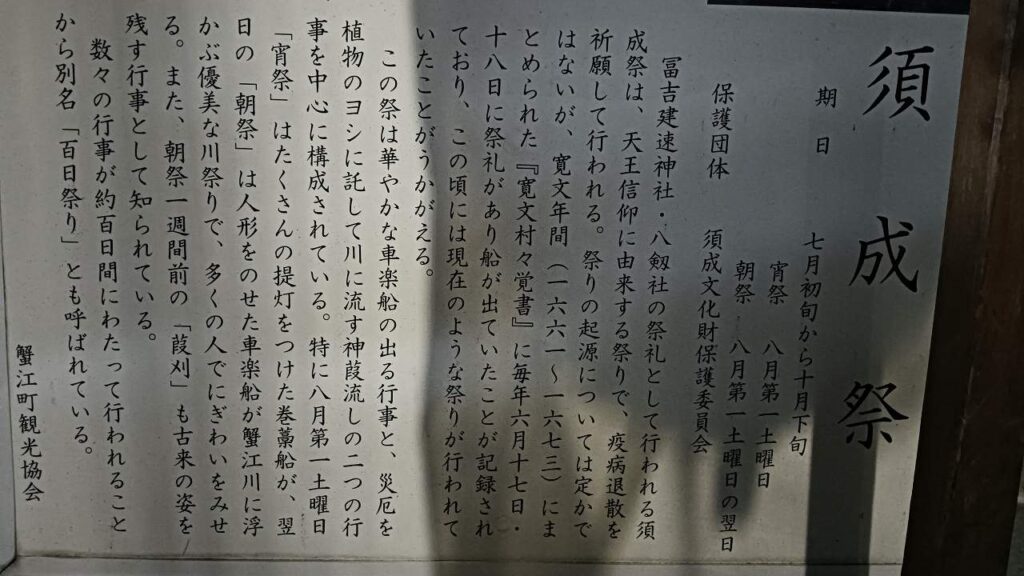 須成祭
期日　七月初旬から十月下旬
宵祭　八月第一土曜日
朝祭　八月第一土曜日の翌日
保護団体　須成文化財保護委員会
冨吉建速神社・八剱社の祭礼として行われる須
成祭は、天王信仰に由来する祭りで、疫病退散を
祈願して行われる。祭りの起源については定かで
はないが、寛文年間（一六六一～一六七三）にま
とめられた『寛文村々覚書』に毎年六月十七日・
十八日に祭礼があり船が出ていたことが記録され
ており、この頃には現在のような祭りが行われて
いたことがうかがえる。
この祭は華やかな車楽船の出る行事と、災厄を
植物のヨシに託して川に流す神葭流しの二つの行
事を中心に構成されている。特に八月第一土曜日
「宵祭」はたくさんの提灯をつけた巻藁船が、翌
日の「朝祭」は人形をのせた車楽船が蟹江川に浮
かぶ優美な川祭りで、多くの人でにぎわいをみせ
る。また、朝祭一週間前の「葭刈」も古来の姿を
残す行事として知られている。
数々の行事が約百日間にわたって行われること
から別名「百日祭り」とも呼ばれている。
蟹江町観光協会